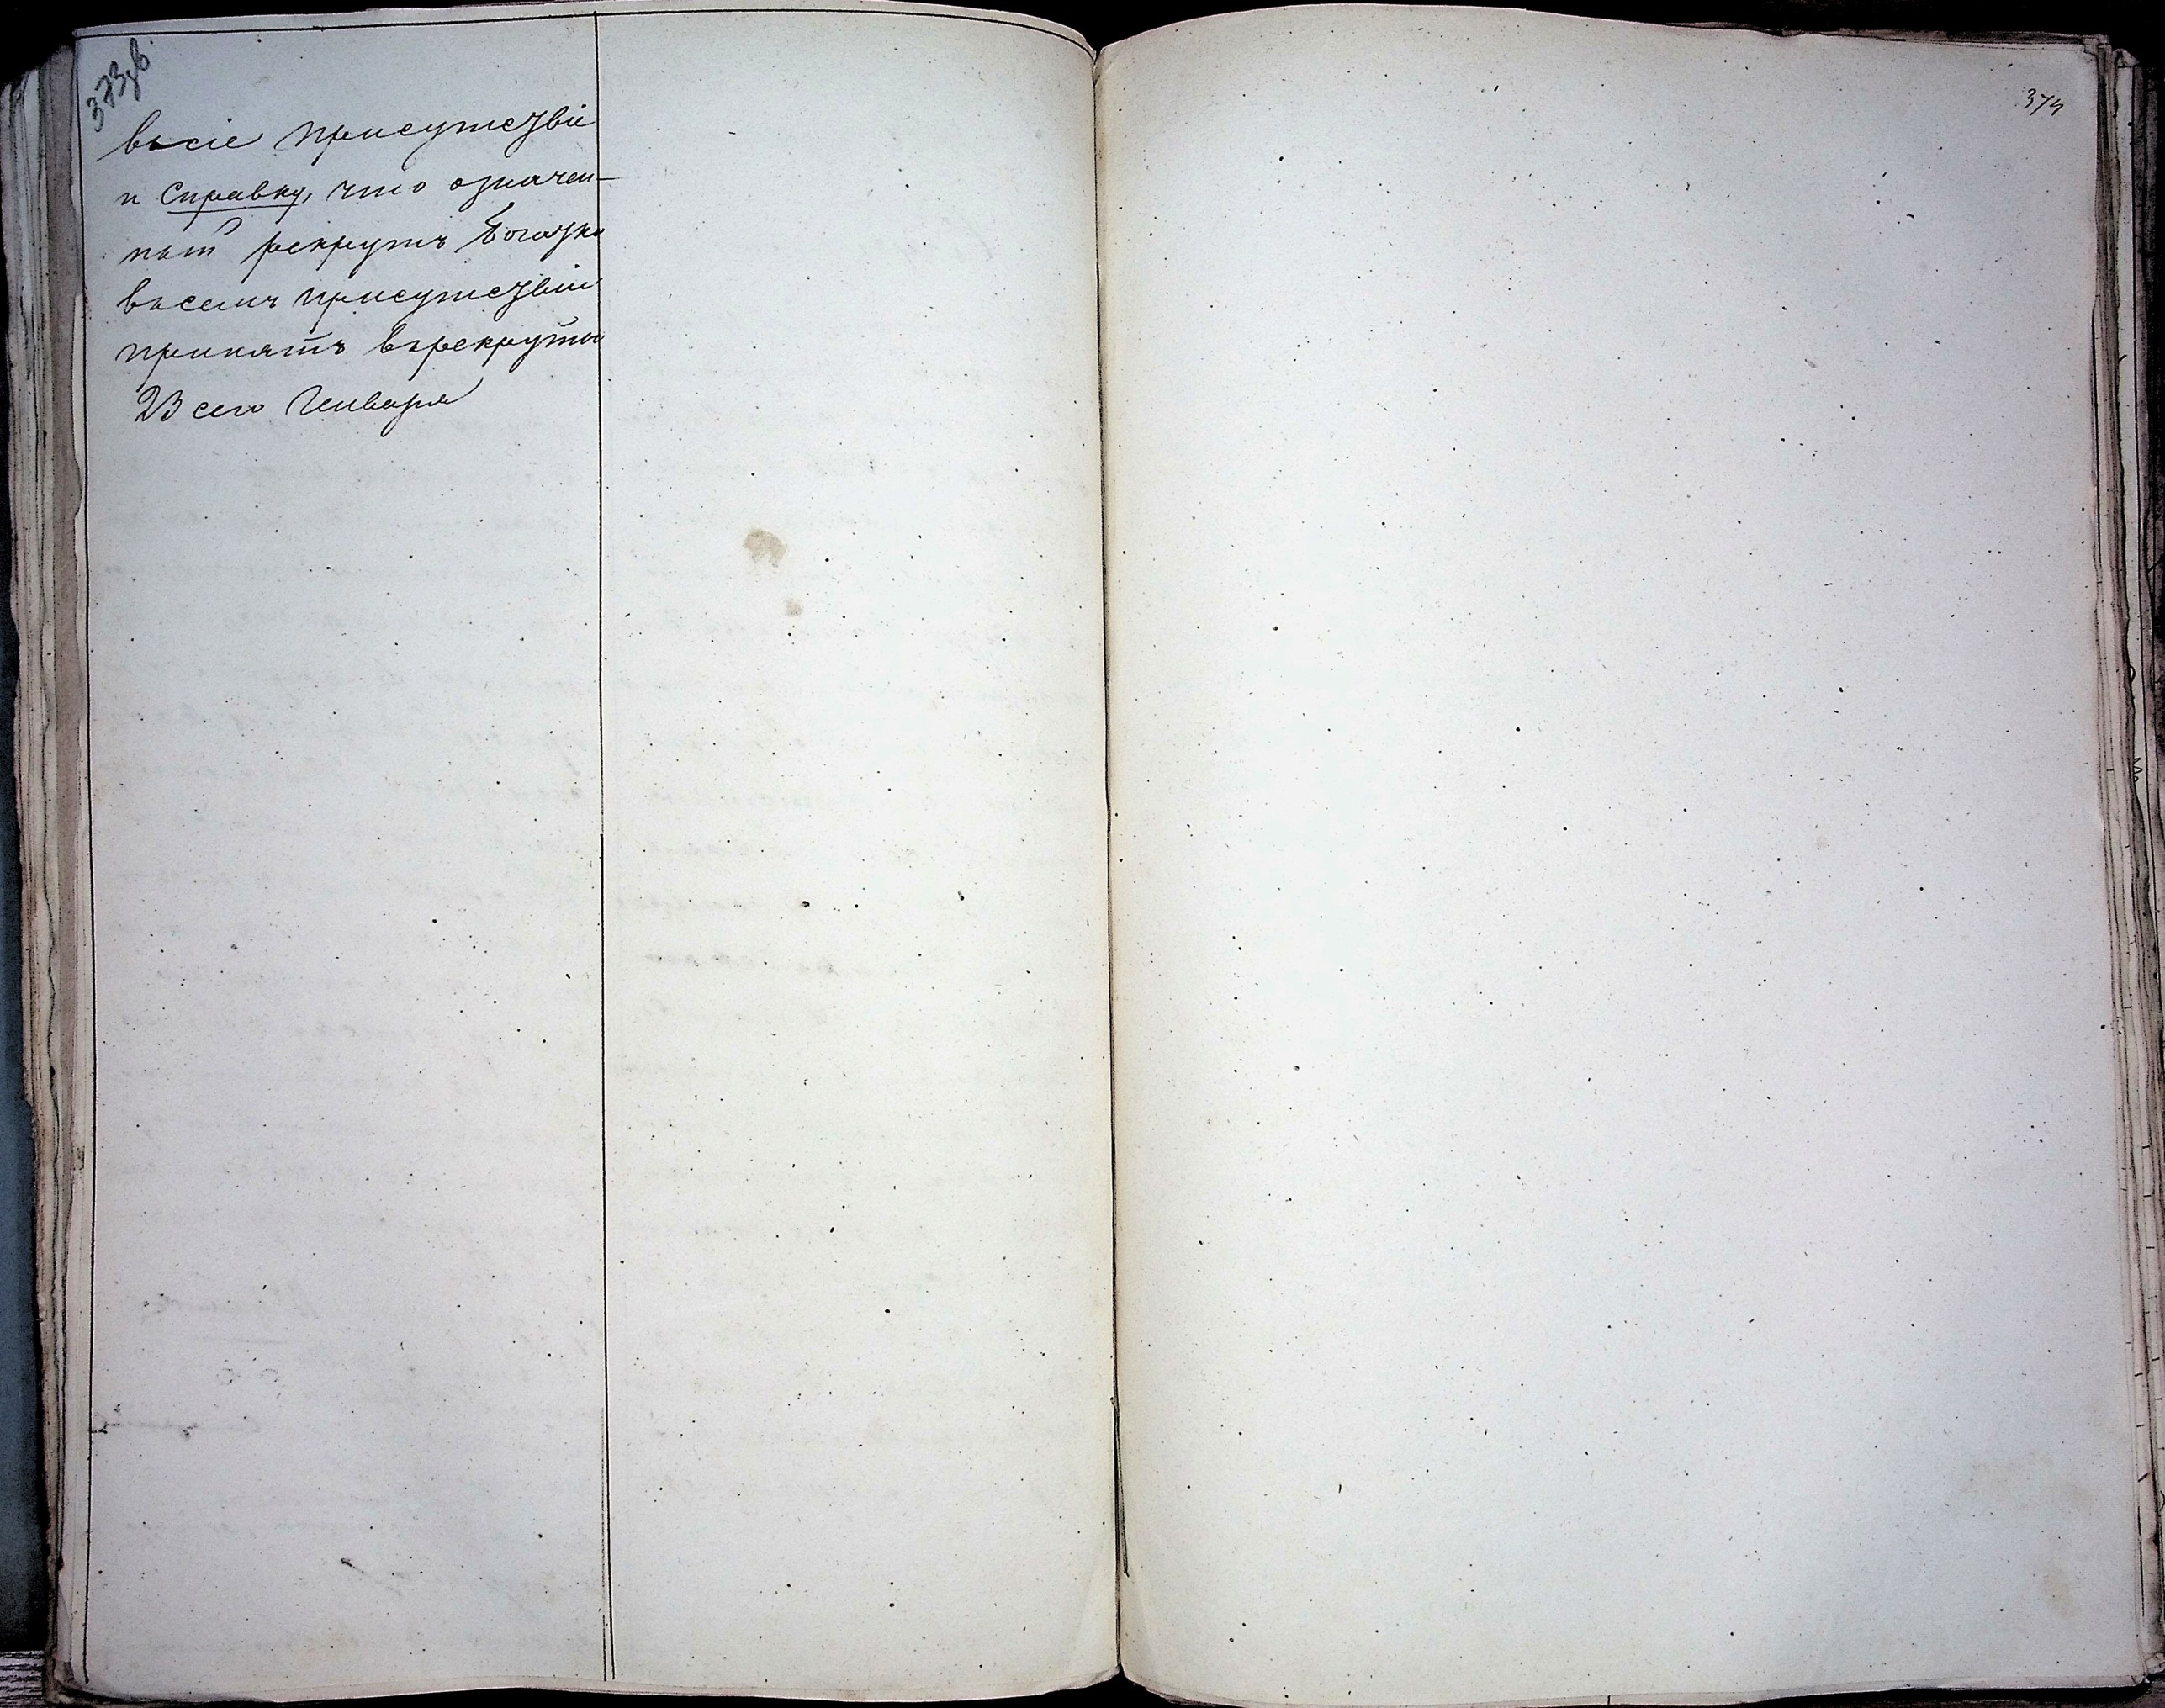 373об
въ сіе присутствіе
и Справку, что означен-
ный рекрутъ
въ семъ присутствіи
принятъ въ рекруты
23 сего Генваря
374